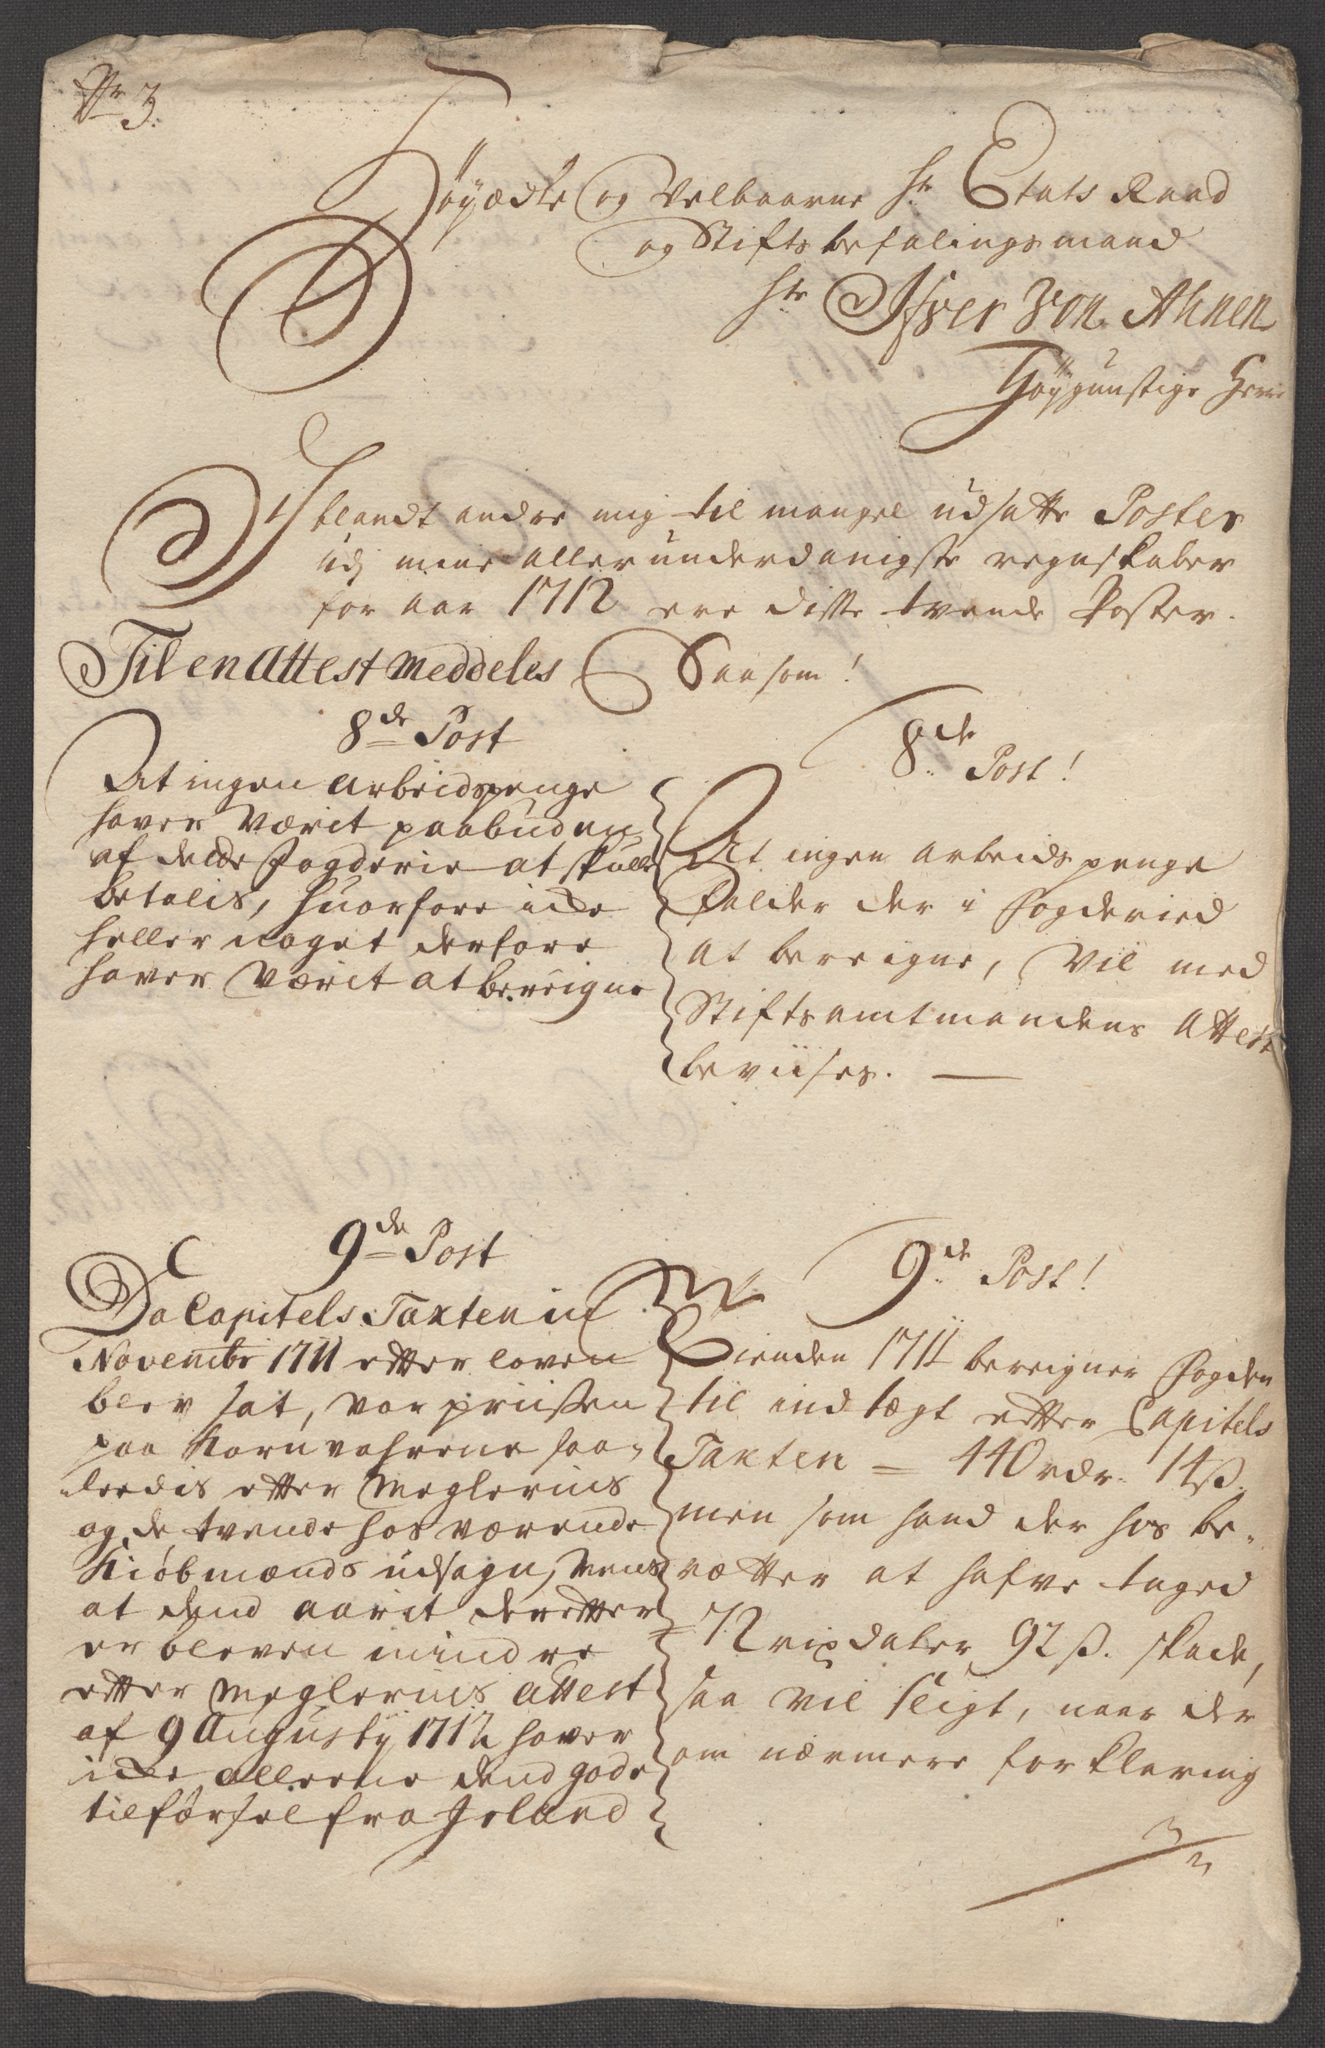 Nr 3.
Høyædle og Velbaarne Hr Etats Raad
og Stifts befalingsmand
Hr Ifver von Ahnen
Høygunstige Herre
Iblandt andre mig til mangel udsatte Poster
udj mine allerunderdanigste regnskaber
for aar 1712 ere disse tvende Poster.
Saasom!
Til en Attest Meddeles
8de Post
At ingen arbeidspenge
haver værit paabuden
af dette Fogderie at skulle
betalis, huorfore icke
heller noget derfore
haver værit at bereigne
8de Post!
At ingen arbeids penge
falder der i Fogderied
at bereigne, vil med
Stiftsamtmandens Attest
beviises.
9de Post
Da Capitels Taxten in
Novembr 1711 etter loven
blev sat, var priisen
paa Kornvahrene saa-
ledis etter Meglerins
og de tvende hos værende
Kiøbmænds udsagn, mens
at dend aarit deretter
er bleven mindre
etter Meglerins Attest
af 9 Augustij 1712 haver
icke allene dend gode
tilførsel fra Jrland
9de Post!
Tienden 1711 bereigner Fogden
til indtægt etter Capitels
Taxten = 440 rdr. 14 ß.
men som hand der hos be-
rætter at hafve taged
72 rixdaler 92 ß. skade,
saa vil sligt, naar der
om nærmere forklaring